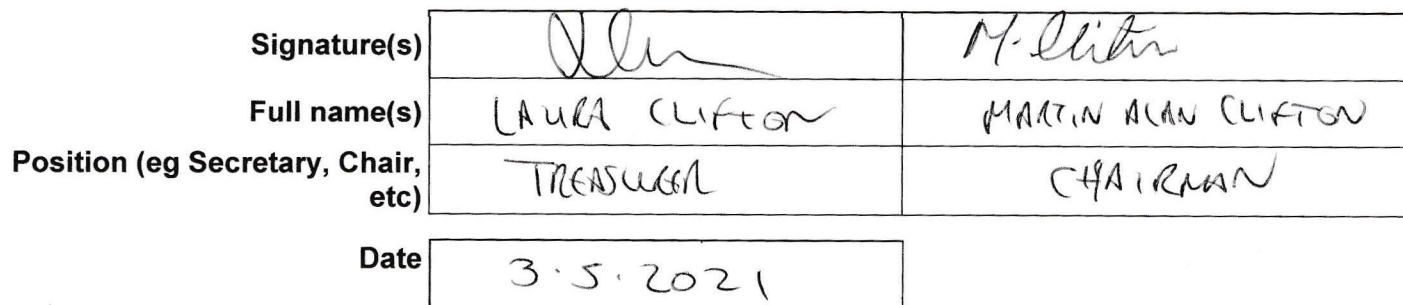 Signature(s) M. Clifton
Full name(s) LAURA CLIFTON MARTIN ALAN CLIFTON
Position (eg Secretary, Chair, etc) TREASURER CHAIRMAN
Date 3.5.2021